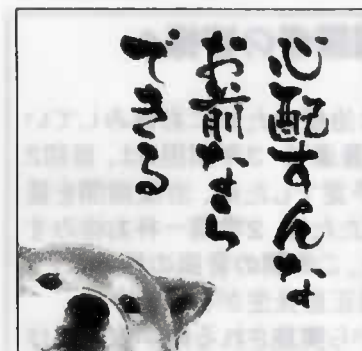 心配すんな
お前なら
できる